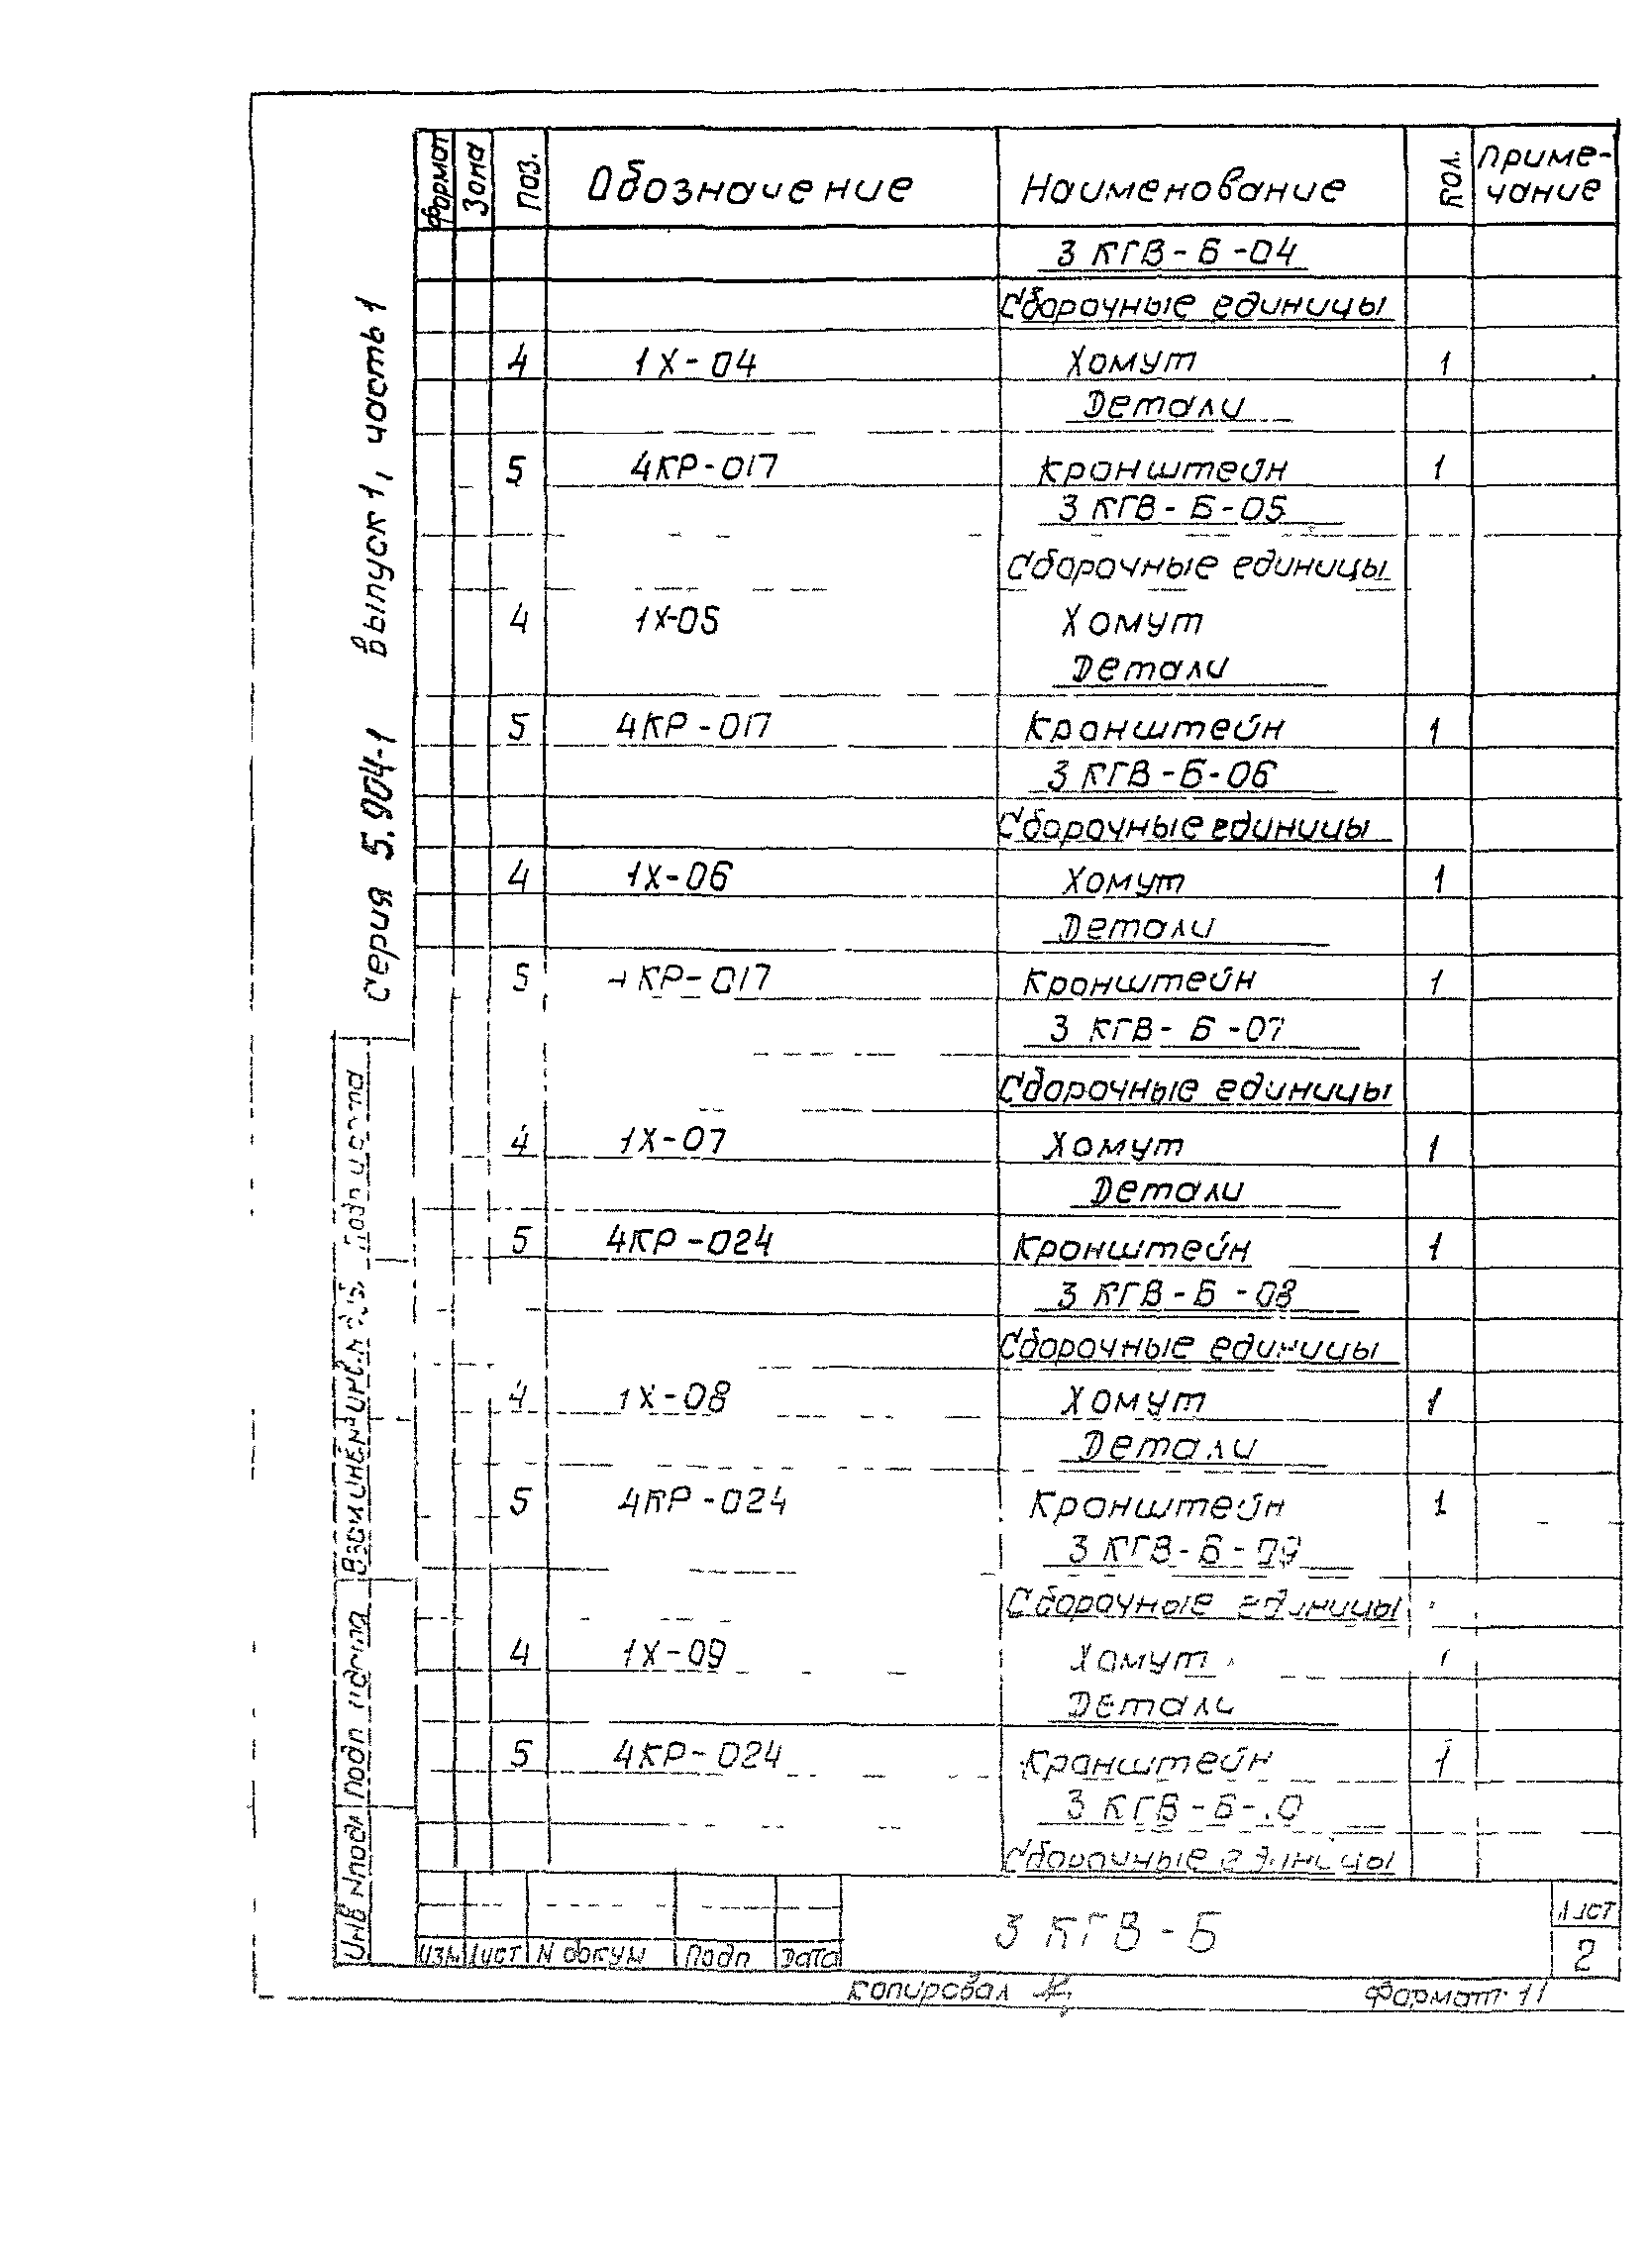 Формат Зона Поз. Обозначение Наименование Кол. Приме-
чание
3 КГВ-Б-04
Сборочные единицы
4 1Х-04 Хомут 1
Детали
5 4КР-017 Кронштейн 1
3 КГВ-Б-05
Сборочные единицы
4 1Х-05 Хомут
Детали
5 4КР-017 Кронштейн 1
3 КГВ-Б-06
Сборочные единицы
4 1Х-06 Хомут 1
Детали
5 4КР-017 Кронштейн 1
3 КГВ-Б-07
Сборочные единицы
4 1Х-07 Хомут 1
Детали
5 4КР-024 Кронштейн 1
3 КГВ-Б-08
Сборочные единицы
4 1Х-08 Хомут 1
Детали
5 4КР-024 Кронштейн 1
3 КГВ-Б-09
Сборочные единицы
4 1Х-09 Хомут 1
Детали
5 4КР-024 Кронштейн 1
3 КГВ-Б-10
Сборочные единицы
Изм Лист N докум Подп Дата
3 КГВ-Б
Лист
2
Копировал
Формат 11
Серия 5.904-1 Выпуск 1, часть 1
Инв N подл Подп и дата Взам инв N Инв. N дубл. Подп и дата